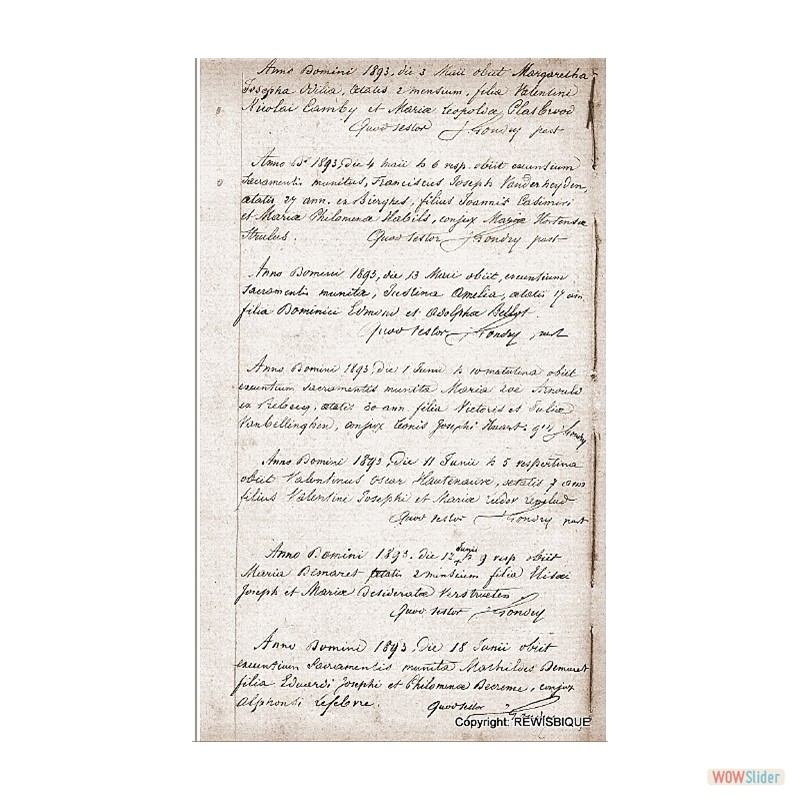 Anno Domini 1893, die 3 Maii obiit Margaretha
Josepha Odilia, aetatis 2 mensium, filia Valentini
Nicolai Camby et Mariae Leopoldae
Quod testor J Gondry past
Anno Di 1893, die 4 maii h 6 vesp. obiit exeuntium
Sacramentis munitus, Franciscus Joseph Vanderheyden,
aetatis 27 ann. ex Bierghes, filius Joannis Casimiri
et Mariae Philomenae Habils, conjux Mariae Hortensae
Strulus. Quod testor J Gondry past
Anno Domini 1893, die 13 Maii obiit, exeuntium
sacramentis munita, Justina Amelia, aetatis 17 ann
filia Dominici Edmond et Adolphae Bellot.
quod testor J Gondry, past
Anno Domini 1893, die 1 Junii h 10 matutina obiit
exeuntium sacramentis munita Maria Zoe Arnould
ex Rebecq, aetatis 30 ann filia Victoris et Juliae
Van Cellinghen, conjux Leonis Josephi Huart. J Gondry
Anno Domini 1893, die 11 Junii h 5 vespertina
obiit Valentinus Oscar Hautenauve, aetatis 7 ann
filius Valentini Josephi et Mariae
Quod testor J Gondry past
Anno Domini 1893. die 12 Junii h 9 vesp obiit
Maria Demaret aetatis 2 mensium filia Elisaei
Joseph et Mariae Desideratae Verstraeten
Quod testor J Gondry
Anno Domini 1893, die 18 Junii obiit
exeuntium Sacramentis munita Mathildis Demaret
filia Eduardi Josephi et Philomenae Decreme, conjux
Alphonsi Lefebvre. Quod testor J Gondry
Copyright: REWISBIQUE
WOWSlider